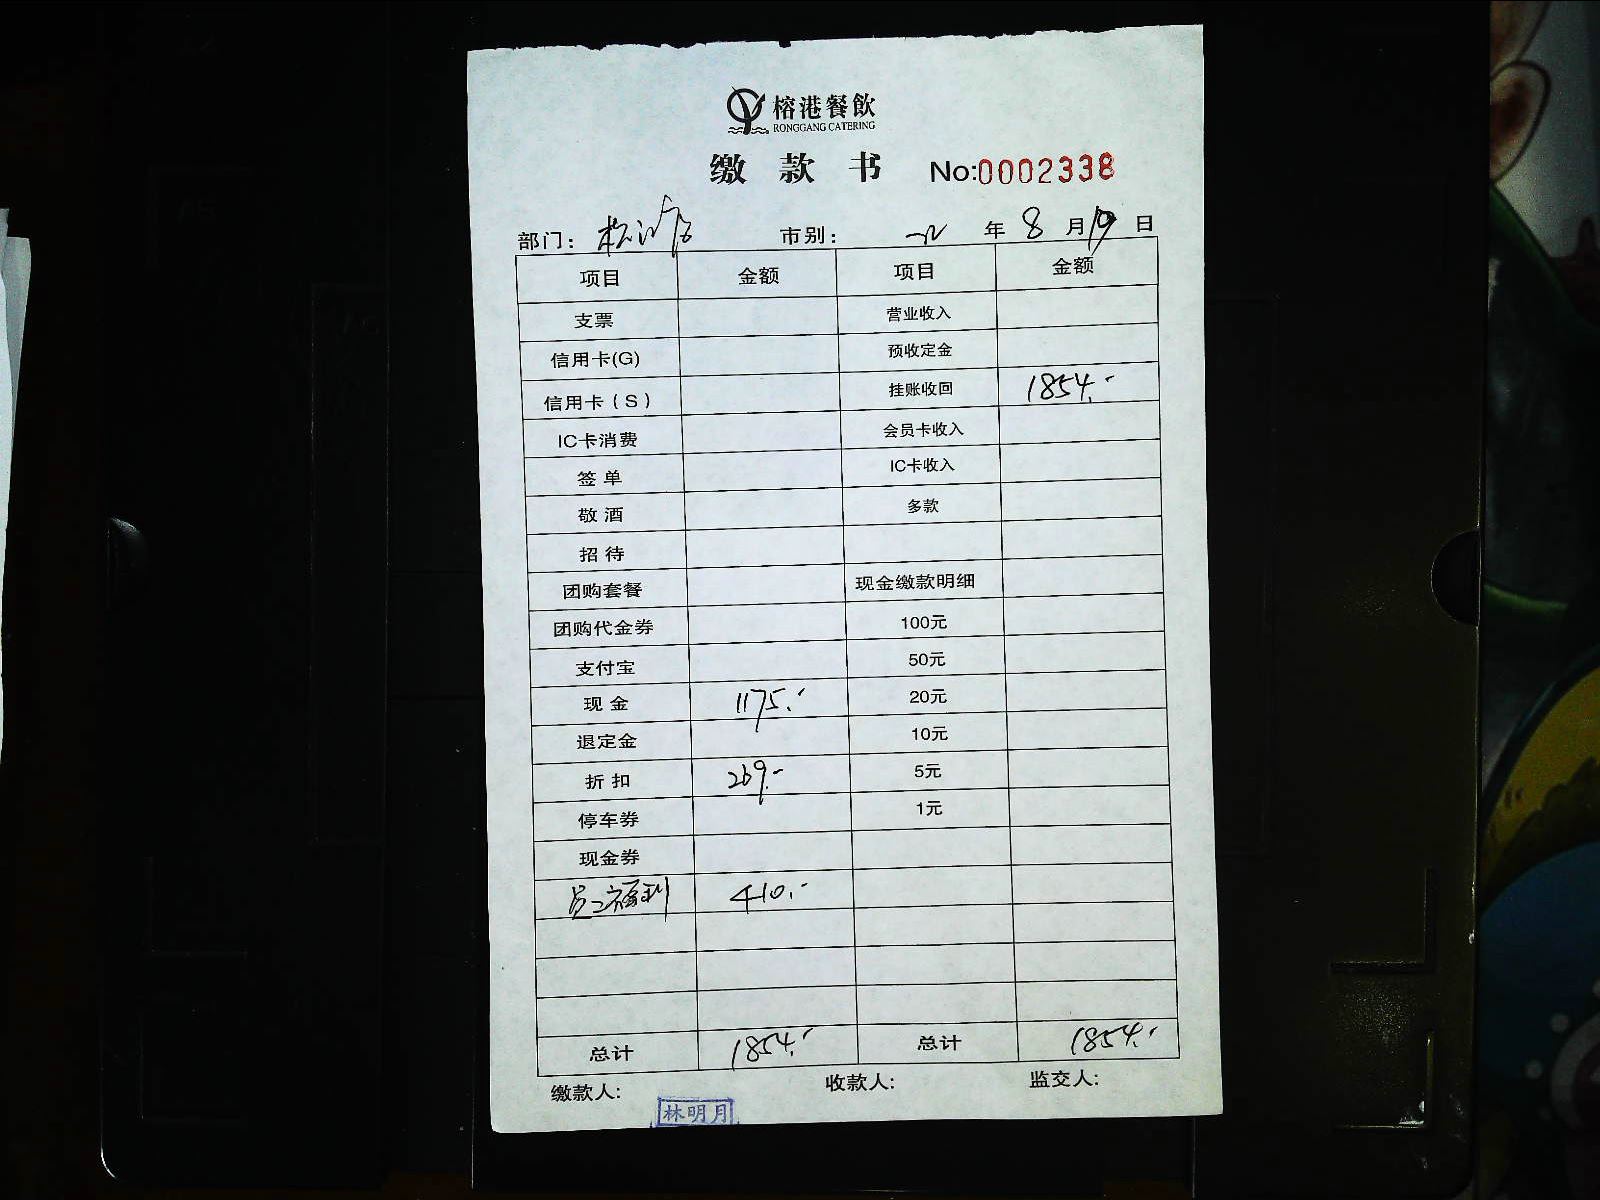 榕港餐飲
RONGGANG CATERING
缴款书 No:0002338
部门: 松江店 市别: 年 8 月 19 日
项目 金额 项目 金额
支票 营业收入
信用卡(G) 预收定金
信用卡(S) 挂账收回 1854.-
IC卡消费 会员卡收入
签单 IC卡收入
敬酒 多款
招待
团购套餐 现金缴款明细
团购代金券 100元
支付宝 50元
现金 1175.- 20元
退定金 10元
折扣 269.- 5元
停车券 1元
现金券
员工福利 410.-
总计 1854.- 总计 1854.-
缴款人: 收款人: 监交人:
林明月